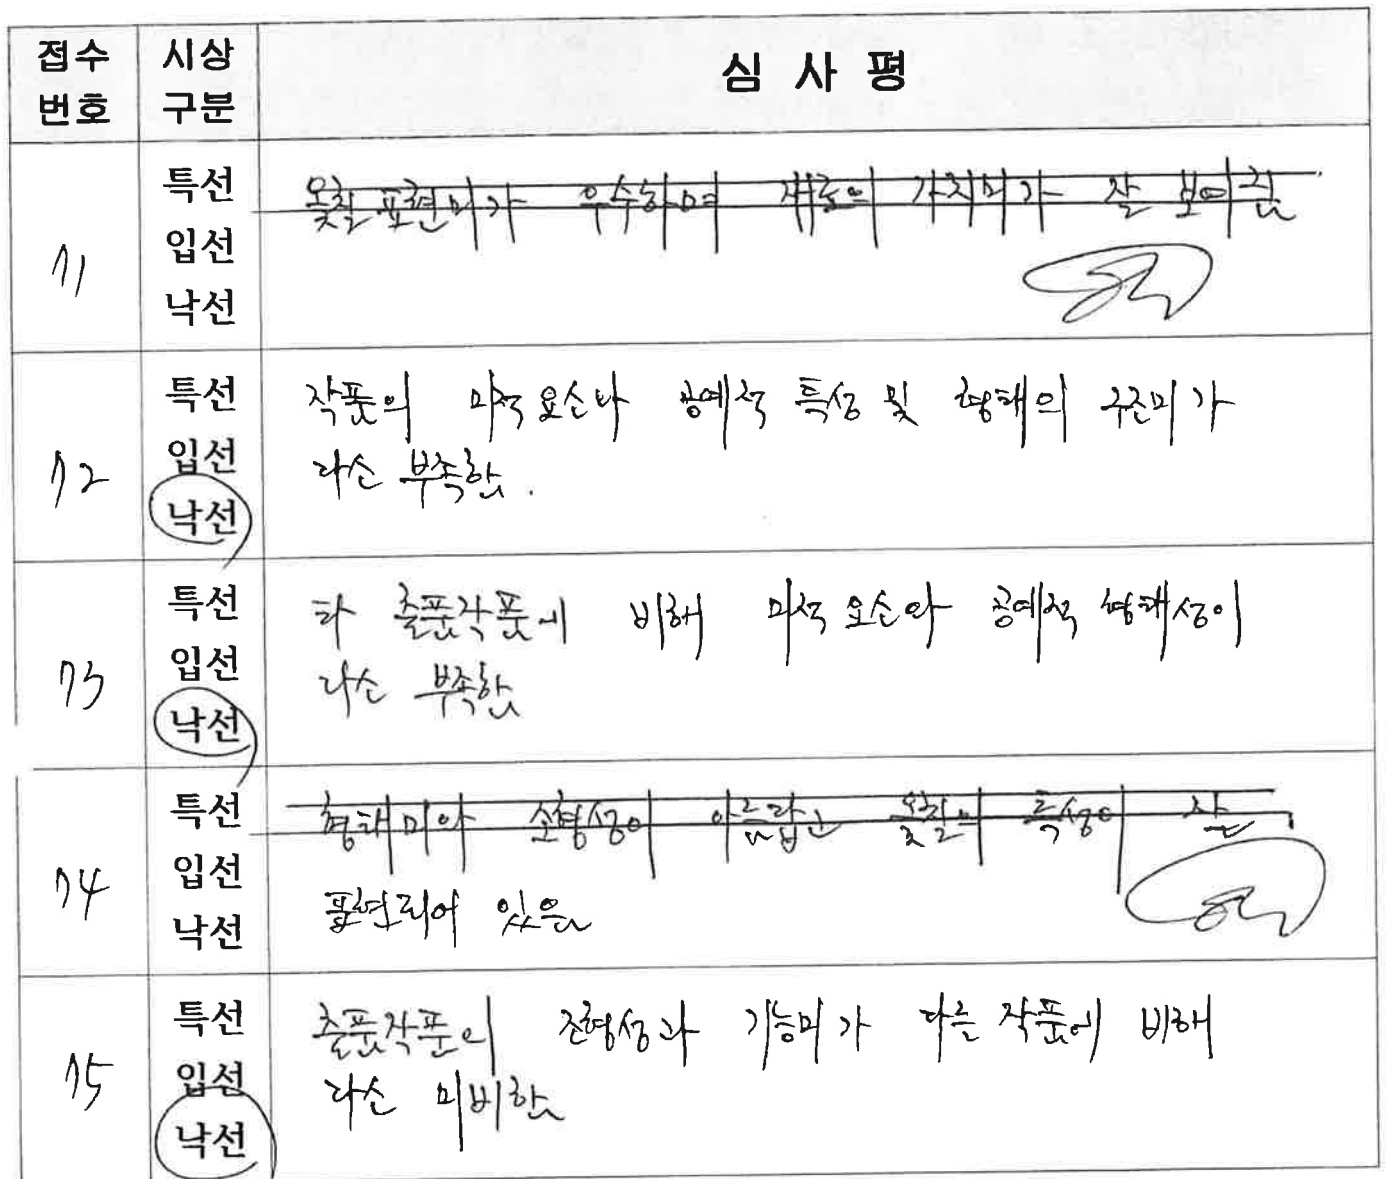 접수 번호 시상 구분 심 사 평
71
특선
입선
낙선
옻칠 표현미가 우수하며 재료의 가치미가 잘 보여짐
72
특선
입선
낙선
작품의 미적요소나 공예적 특성 및 형태의 구조미가
다소 부족함.
73
특선
입선
낙선
타 출품작품에 비해 미적요소와 공예적 형태성이
다소 부족함
74
특선
입선
낙선
형태미와 조형성이 아름답고 옻칠의 특성이 잘
표현되어 있음
75
특선
입선
낙선
출품작품의 조형성과 기능미가 다른 작품에 비해
다소 미비함